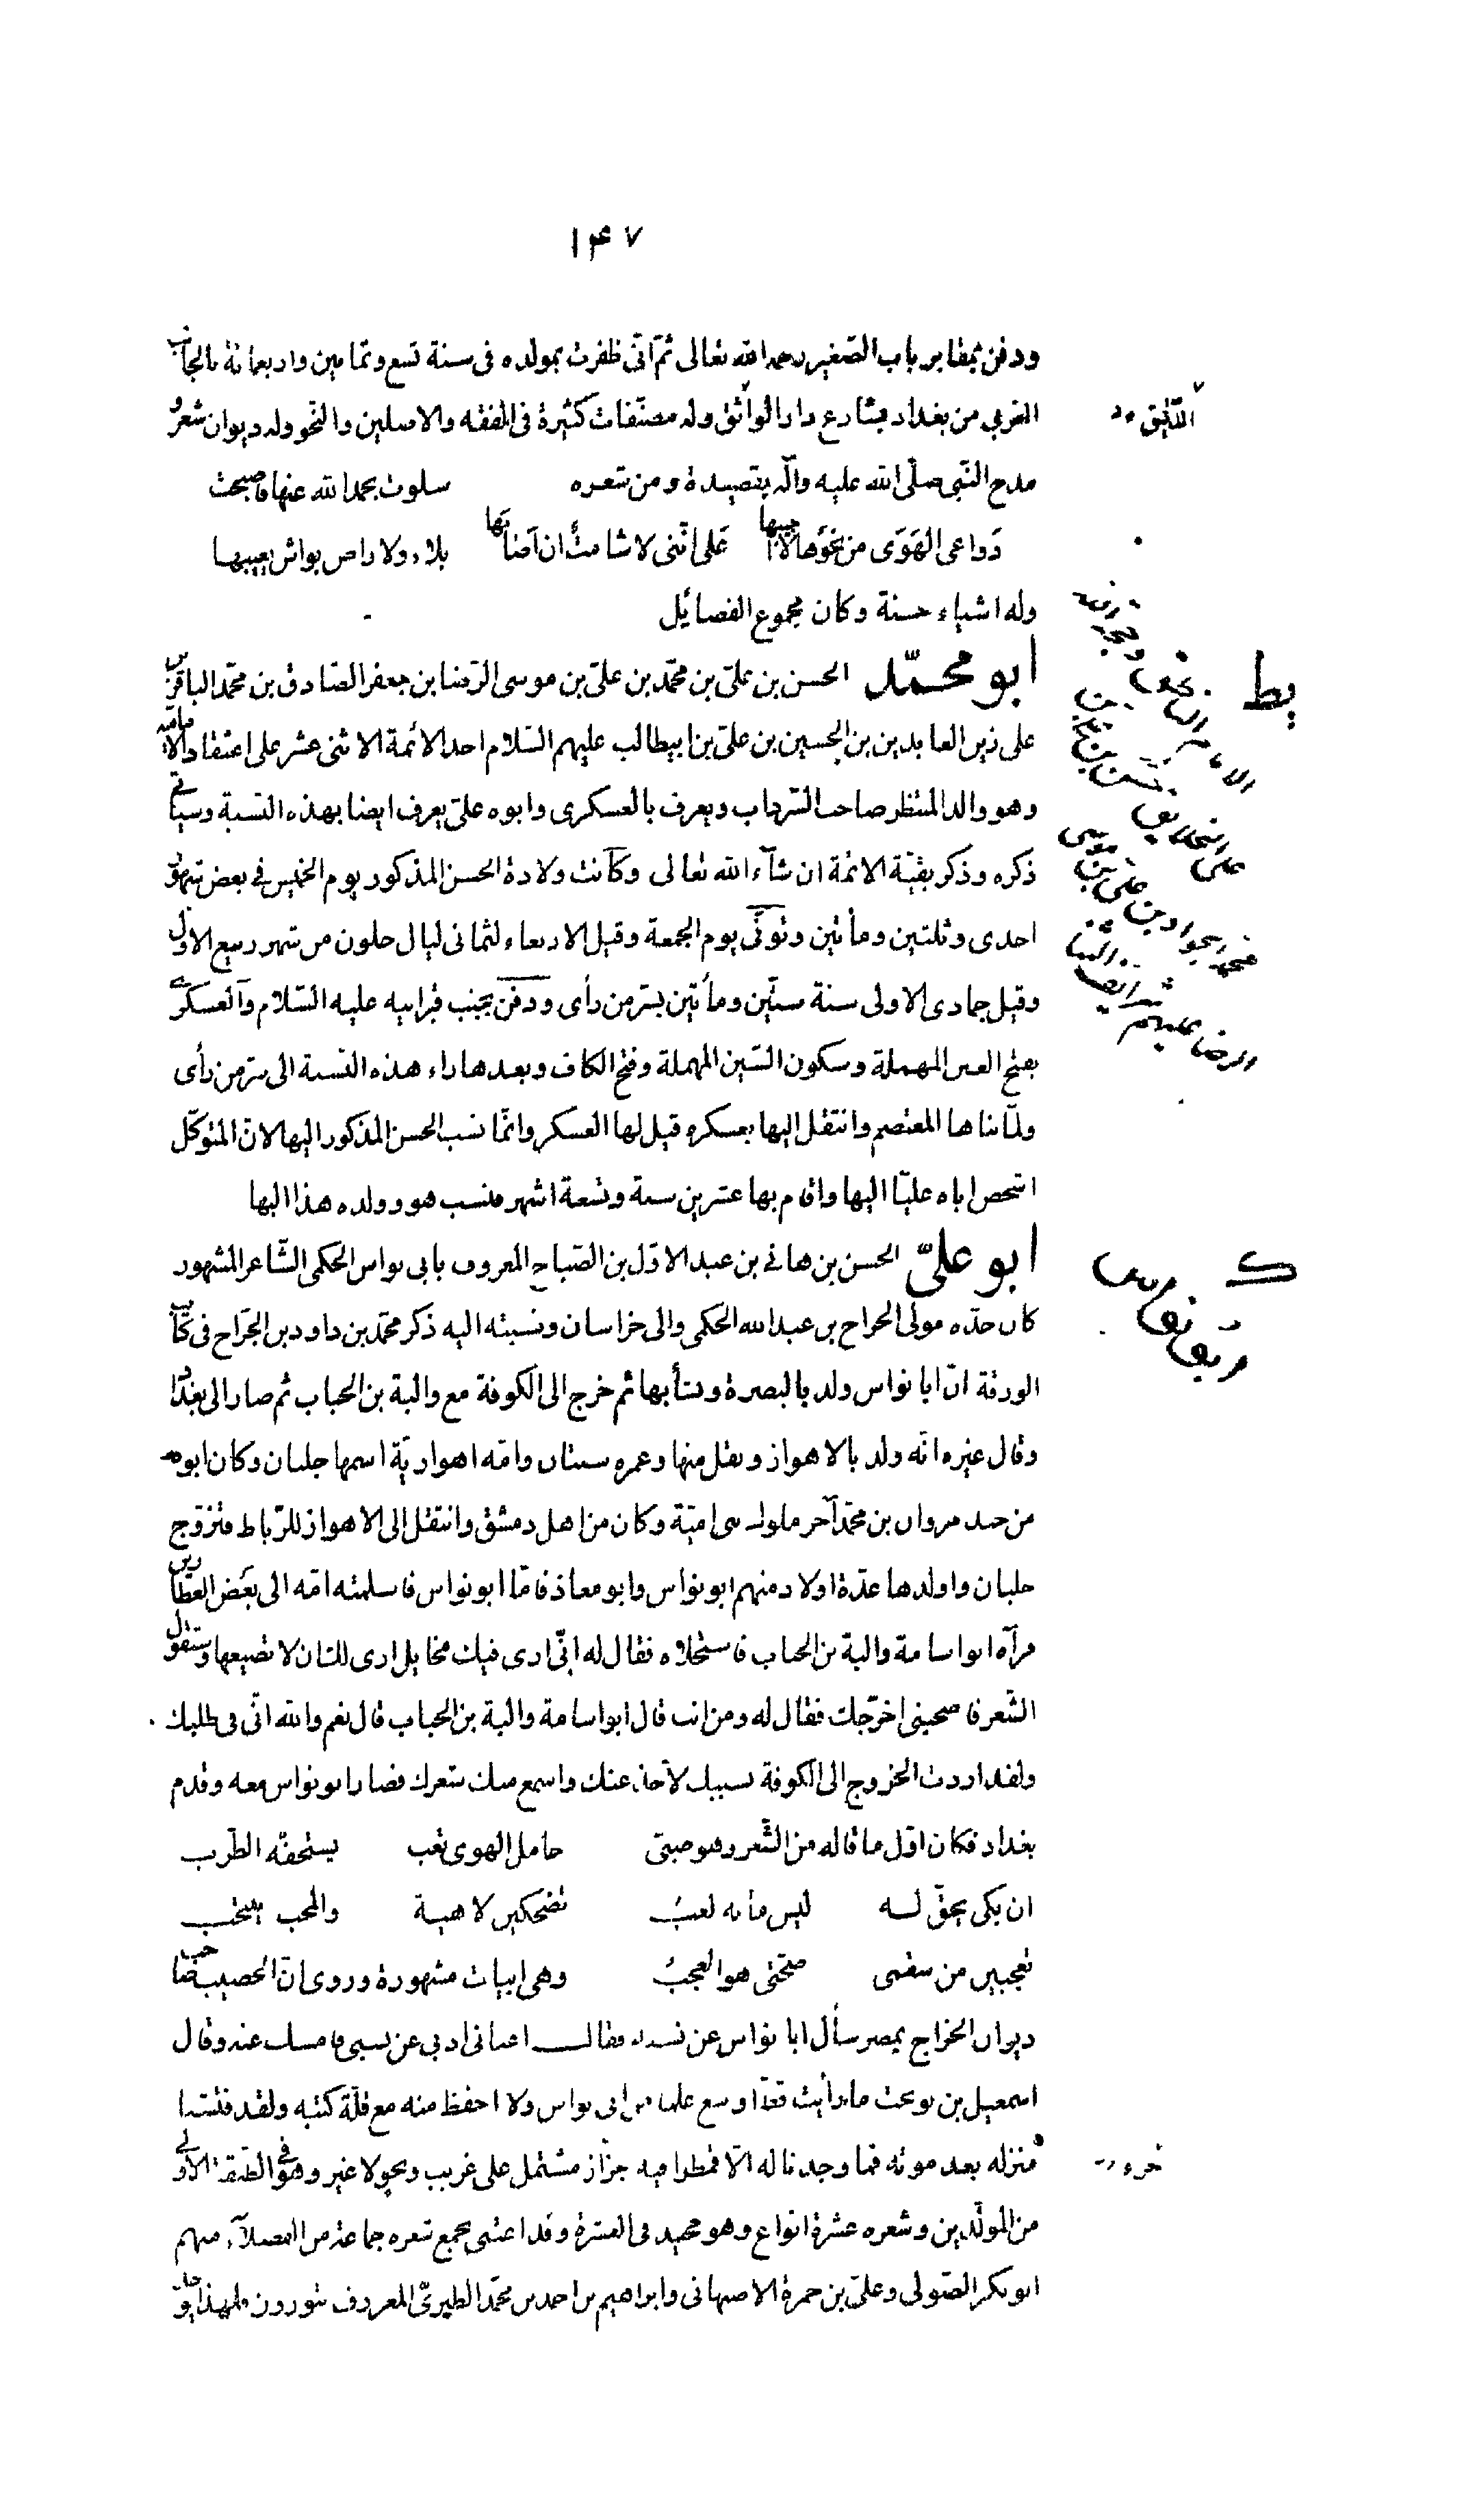 ١٤٧
ودفن بمقابر باب الصّغير رحمه الله تعالى ثمّ انّى ظفرت بمولده فى سنة تسع وثمانين واربعمائة بالجانب
الغربي من بغداد بشارع دار الرّقيق وله مصنّفات كثيرة فى الفقه والاصلين والنّحو وله ديوان شعر و
مدح النّبى صلّى الله عليه وآله بقصيدة ومن شعره سلوت بحمد الله عنها فاصبحت
دَواعى الهَوَى من نحوَها لا اجيبها عَلى انّنى لا شامتٌ ان اَصابَها بلاء ولا راض بواش يعيبها
وله اشياء حسنة وكان مجموع الفضائل
ابو محمّد الحسن بن علىّ بن محمّد بن علىّ بن موسى الرّضا بن جعفر الصّادق بن محمّد الباقر بن
على زين العابدين بن الحسين بن علىّ بن ابيطالب عليهم السّلام احد الائمة الاثنى عشر على اعتقاد الاماميّة
وهو والد المنتظر صاحب السّرداب ويعرف بالعسكرى وابوه علىّ يعرف ايضا بهذه النّسبة وسياتي
ذكره وذكر بقيّة الائمّة ان شآء الله تعالى وكآنت ولادة الحسن المذكور يوم الخميس في بعض شهور
احدى وثلثين ومأتين وتوفّى يوم الجمعة وقيل الاربعاء لثمانى ليال خلون من شهر ربيع الاول
وقيل جمادى الاولى سنة ستّين ومأتين بسّر من رأى ودفن بجنب قبر ابيه عليه السّلام والعسكرى
بفتح العين المهملة وسكون السّين المهملة وفتح الكاف وبعدها راء هذه النّسبة الى سّر من رأى
ولمّا بناها المعتصم وانتقل اليها بعسكره قيل لها العسكر وانّما نسب الحسن المذكور اليها لانّ المتوكّل
اشخص اباه عليّا اليها واقام بها عشرين سنة وتسعة اشهر فنسب هو وولده هذا اليها
ابو علىّ الحسن بن هانى بن عبد الاوّل بن الصّباح المعروف بابى نواس الحكمى الشّاعر المشهور
كان جدّه مولى الجراح بن عبد الله الحكمى والى خراسان ونسبته اليه ذكر محمّد بن داود بن الجرّاح فى كتاب
الورقة انّ ابا نواس ولد بالبصرة ونشأ بها ثم خرج الى الكوفة مع والبة بن الحباب ثم صار الى بغداد
وقال غيره انّه ولد بالاهواز ونقل منها وعمره سنتان وامّه اهوازيّة اسمها جلبان وكان ابوه
من جند مروان بن محمّد آخر ملوك بنى اميّة وكان من اهل دمشق وانتقل الى الاهواز للرّباط فتزوّج
جلبان واولدها عدّة اولاد منهم ابو نواس وابو معاذ فامّا ابو نواس فاسلمته امّه الى بعض العطّارين
فرآه ابو اسامة والبة بن الحباب فاستحلاه فقال له انّى ارى فيك مخايل ارى لك ان لا تضيعها وستقول
الشّعر فاصحبنى اخرّجك فقال له ومن انت قال ابو اسامة والبة بن الحباب قال نعم والله انّى فى طلبك
ولقد اردت الخروج الى الكوفة بسببك لآخذ عنك واسمع منك شعرك فصار ابو نواس معه وقدم
بغداد فكان اوّل ما قاله من الشّعر وهو صبىّ حامل الهوى تعب يستخفّه الطّرب
ان بكى يحقّ له ليس ما به لعبُ تضحكين لاهية والمحب ينتحب
تعجبين من سقمى صحّتى هو العجبُ وهى ابيات مشهورة وروى انّ الخصيب صاحب
ديوان الخراج بمصر سأل ابا نواس عن نسبه فقال اغنانى ادبى عن نسبى فامسك عنه وقال
اسمعيل بن نوبخت ما رأيت قطّ اوسع علما من ابى نواس ولا احفظ منه مع قلّة كتبه ولقد فتشنا
منزله بعد موته فما وجدنا له الّا قمطرا فيه جزاز مشتمل على غريب ونحو لا غير وهو فى الطبقة الاولى
من المولّدين وشعره عشرة انواع وهو مجيد فى العشرة وقد اعتنى بجمع شعره جماعة من الفضلآء منهم
ابو بكر الصّولى وعلىّ بن حمزة الاصبهانى وابراهيم بن احمد بن محمّد الطبرىّ المعروف بتوزون فلهذا يوجد
يط
ك
ابو نواس